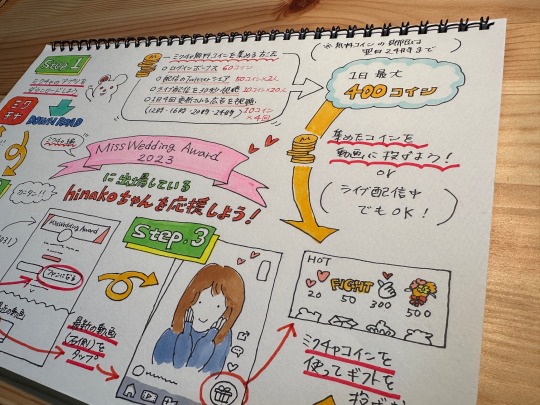 Step 1
ミクチャのアプリを
ダウンロードしよう
ミクチャ
DOWNLOAD
ミクチャ無料コインを集める方法
ログインボーナス 60コイン
10コイン×2人
10コイン×20人
1日4回更新される広告を視聴
(12時・16時・20時・24時) 10コイン×4回
(※無料コインの
翌日24時まで)
1日最大
400コイン
集めたコインを
動画に投げよう!
or
(ライブ配信中
でもOK!)
Miss Wedding Award
2023
に出場している
hinakoちゃんを応援しよう!
カンタン!!
Miss Wedding Award
最新の動画
(右側)を
タップ
Step.3
HOT
FIGHT
20 50 300 500
ミクチャコインを
使ってギフトを